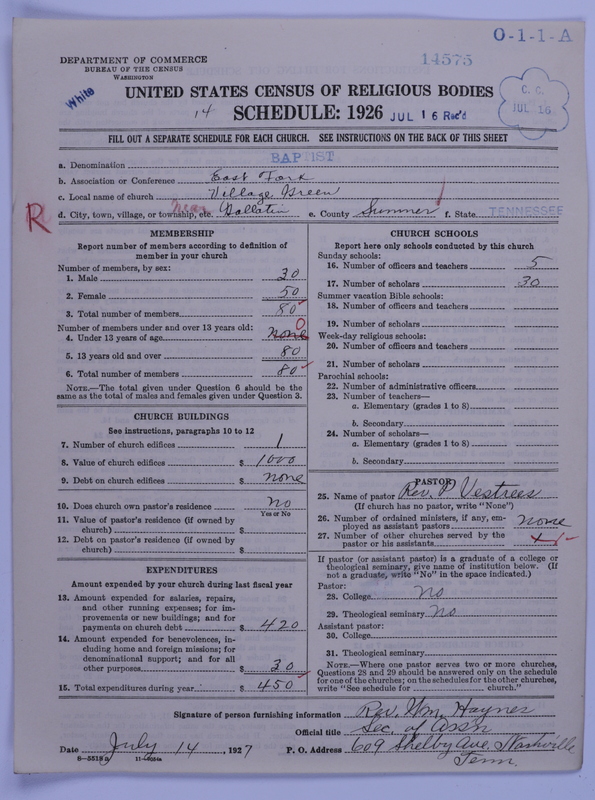 O-1-1-A
14575
DEPARTMENT OF COMMERCE
BUREAU OF THE CENSUS
WASHINGTON
White
UNITED STATES CENSUS OF RELIGIOUS BODIES
14 SCHEDULE: 1926 JUL 16 Rec'd
C. C. JUL 16
FILL OUT A SEPARATE SCHEDULE FOR EACH CHURCH. SEE INSTRUCTIONS ON THE BACK OF THIS SHEET
a. Denomination BAPTIST
b. Association or Conference East Fork
c. Local name of church Village Green
R d. City, town, village, or township, etc. near Gallatin e. County Sumner f. State TENNESSEE
MEMBERSHIP
Report number of members according to definition of
member in your church
Number of members, by sex:
1. Male 30
2. Female 50
3. Total number of members 80
Number of members under and over 13 years old: 0
4. Under 13 years of age none
5. 13 years old and over 80
6. Total number of members 80
NOTE.—The total given under Question 6 should be the
same as the total of males and females given under Question 3.
CHURCH BUILDINGS
See instructions, paragraphs 10 to 12
7. Number of church edifices 1
8. Value of church edifices $ 1000
9. Debt on church edifices $ none
10. Does church own pastor's residence no
Yes or No
11. Value of pastor's residence (if owned by
church) $
12. Debt on pastor's residence (if owned by
church) $
EXPENDITURES
Amount expended by your church during last fiscal year
13. Amount expended for salaries, repairs,
and other running expenses; for im-
provements or new buildings; and for
payments on church debt $ 420
14. Amount expended for benevolences, in-
cluding home and foreign missions; for
denominational support; and for all
other purposes $ 30
15. Total expenditures during year $ 450
CHURCH SCHOOLS
Report here only schools conducted by this church
Sunday schools:
16. Number of officers and teachers 5
17. Number of scholars 30
Summer vacation Bible schools:
18. Number of officers and teachers
19. Number of scholars
Week-day religious schools:
20. Number of officers and teachers
21. Number of scholars
Parochial schools:
22. Number of administrative officers
23. Number of teachers—
a. Elementary (grades 1 to 8)
b. Secondary
24. Number of scholars—
a. Elementary (grades 1 to 8)
b. Secondary
PASTOR
25. Name of pastor Rev. Vestrees
(If church has no pastor, write "None")
26. Number of ordained ministers, if any, em-
ployed as assistant pastors none
27. Number of other churches served by the
pastor or his assistants
If pastor (or assistant pastor) is a graduate of a college or
theological seminary, give name of institution below. (If
not a graduate, write "No" in the space indicated.)
Pastor:
28. College no
29. Theological seminary no
Assistant pastor:
30. College
31. Theological seminary
NOTE.—Where one pastor serves two or more churches,
Questions 28 and 29 should be answered only on the schedule
for one of the churches; on the schedules for the other churches,
write "See schedule for church."
Signature of person furnishing information Rev. Wm. Haynes
Official title Sec. of Ass'n
Date July 14, 1927 P. O. Address 609 Shelby Ave, Nashville
Tenn.
8-5518a